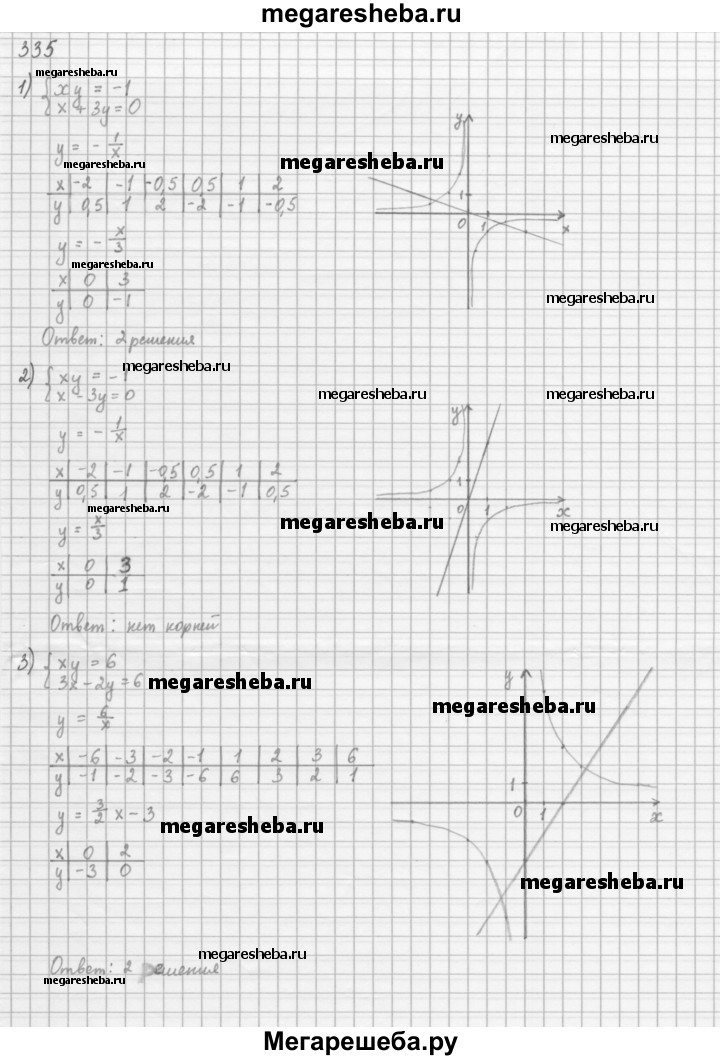 megaresheba.ru
335
megaresheba.ru
1) { xy = -1
x + 3y = 0
y = - 1/x
megaresheba.ru
megaresheba.ru
megaresheba.ru
x | -2 | -1 | -0,5 | 0,5 | 1 | 2
y | 0,5 | 1 | 2 | -2 | -1 | -0,5
y = - x/3
megaresheba.ru
x | 0 | 3
y | 0 | -1
y
1
0 1 x
megaresheba.ru
Ответ: 2 решения
megaresheba.ru
2) { xy = -1
x - 3y = 0
megaresheba.ru
megaresheba.ru
y = - 1/x
x | -2 | -1 | -0,5 | 0,5 | 1 | 2
y | 0,5 | 1 | 2 | -2 | -1 | 0,5
megaresheba.ru
y = x/3
megaresheba.ru
megaresheba.ru
x | 0 | 3
y | 0 | 1
y
1
0 1 x
Ответ: нет корней
3) { xy = 6
3x - 2y = 6
megaresheba.ru
megaresheba.ru
y = 6/x
x | -6 | -3 | -2 | -1 | 1 | 2 | 3 | 6
y | -1 | -2 | -3 | -6 | 6 | 3 | 2 | 1
y = 3/2 x - 3
megaresheba.ru
x | 0 | 2
y | -3 | 0
y
1
0 1 x
megaresheba.ru
megaresheba.ru
Ответ: 2 решения
megaresheba.ru
Мегарешеба.ру